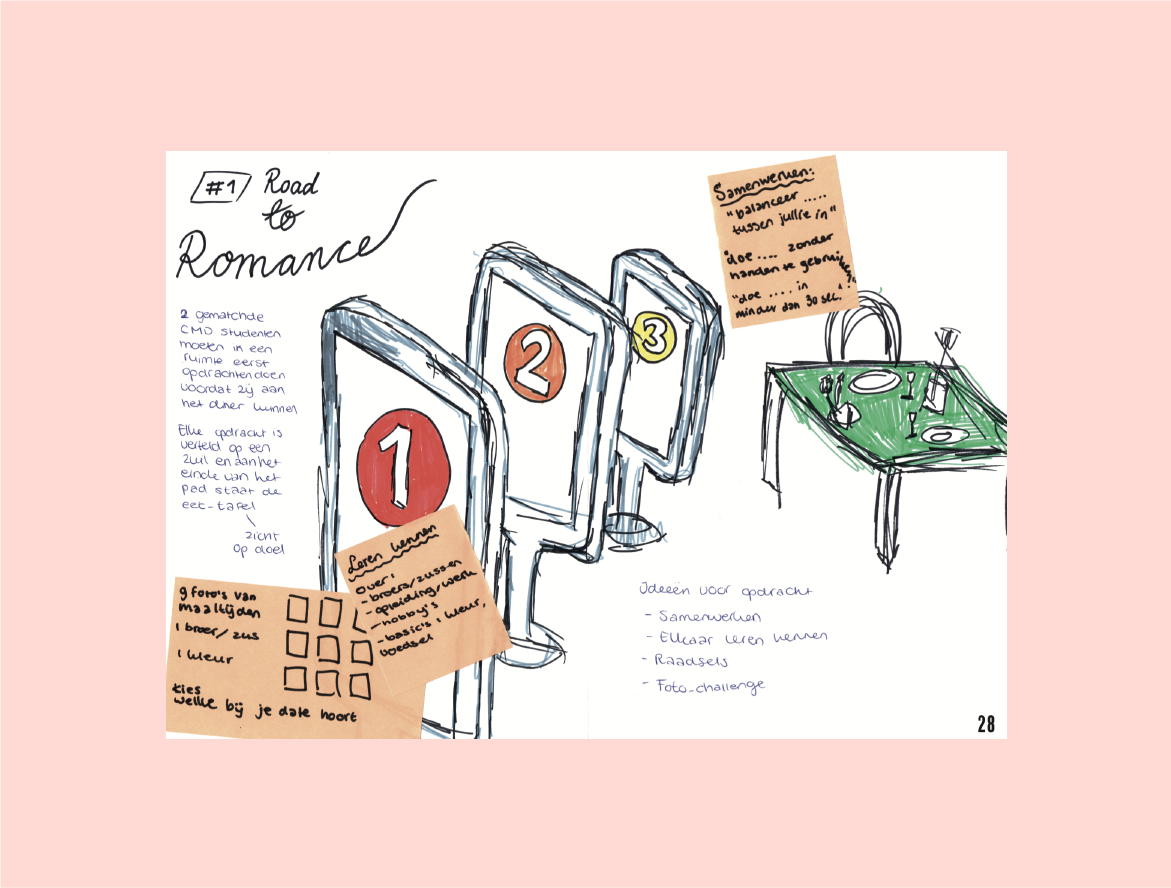 #1 Road
to
Romance
2 gematchde
CMD studenten
moeten in een
ruimte eerst
opdrachten doen
voordat zij aan
het diner kunnen
Elke opdracht is
verteld op een
zuil en aan het
einde van het
pad staat de
eet-tafel
zicht
op doel
1
2
3
Samenwerken:
"balanceer .....
tussen jullie in"
"doe .... zonder
handen te gebruiken"
"doe ..... in
minder dan 30 sec."
Leren kennen
over:
- broers/zussen
- opleiding/werk
- hobby's
- basic's : kleur,
voedsel
9 foto's van
maaltijden
1 broer/zus
1 kleur
kies
welke bij je date hoort
Ideeën voor opdracht
- Samenwerken
- Elkaar leren kennen
- Raadsels
- Foto-challenge
28